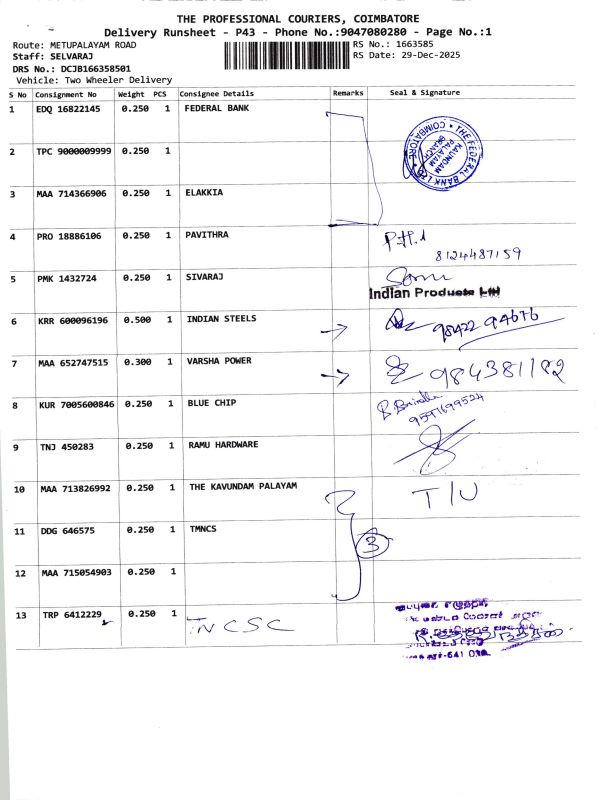 THE PROFESSIONAL COURIERS, COIMBATORE
Delivery Runsheet - P43 - Phone No.:9047080280 - Page No.:1
Route: METUPALAYAM ROAD RS No.: 1663585
Staff: SELVARAJ RS Date: 29-Dec-2025
DRS No.: DCJB166358501
Vehicle: Two Wheeler Delivery
S No Consignment No Weight PCS Consignee Details Remarks Seal & Signature
1 EDQ 16822145 0.250 1 FEDERAL BANK
THE FEDERAL BANK LTD COIMBATORE
KAUNDAM
PALAYAM
BRANCH
2 TPC 9000009999 0.250 1
3 MAA 714366906 0.250 1 ELAKKIA
4 PRO 18886106 0.250 1 PAVITHRA
8124487159
5 PMK 1432724 0.250 1 SIVARAJ
Indian Products Ltd
6 KRR 600096196 0.500 1 INDIAN STEELS 98422 94676
7 MAA 652747515 0.300 1 VARSHA POWER
8 KUR 7005600846 0.250 1 BLUE CHIP
9591699524
9 TNJ 450283 0.250 1 RAMU HARDWARE
10 MAA 713826992 0.250 1 THE KAVUNDAM PALAYAM T/U
11 DDG 646575 0.250 1 TMNCS 3
12 MAA 715054903 0.250 1
13 TRP 6412229 0.250 1 TNCSC